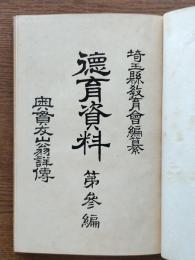 埼玉縣教育會編纂
德育資料
第參編
奥貫友山翁詳傳